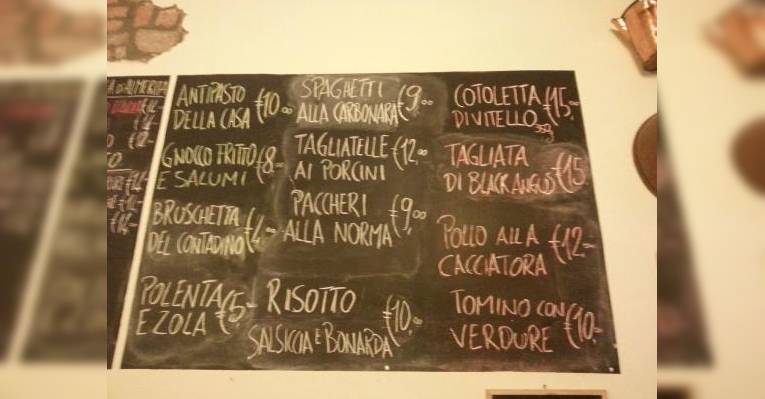 ANTIPASTO
DELLA CASA €10,00
GNOCCO FRITTO
E SALUMI €8,-
BRUSCHETTA
DEL CONTADINO €4,-
POLENTA
E ZOLA €5,-
SPAGHETTI
ALLA CARBONARA €9,00
TAGLIATELLE
AI PORCINI €12,00
PACCHERI
ALLA NORMA €9,00
RISOTTO
SALSICCIA E BONARDA €10,00
COTOLETTA
DI VITELLO €15,-
TAGLIATA
DI BLACK ANGUS €15
POLLO ALLA
CACCIATORA €12,-
TOMINO CON
VERDURE €10,-